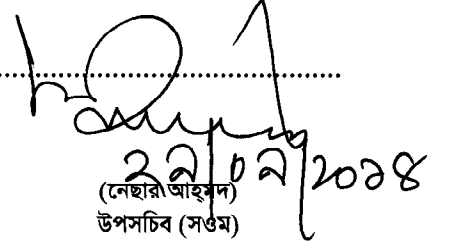 ২৯/০৯/২০১৪
(নেছার আহ্‌মদ)
উপসচিব (সওম)